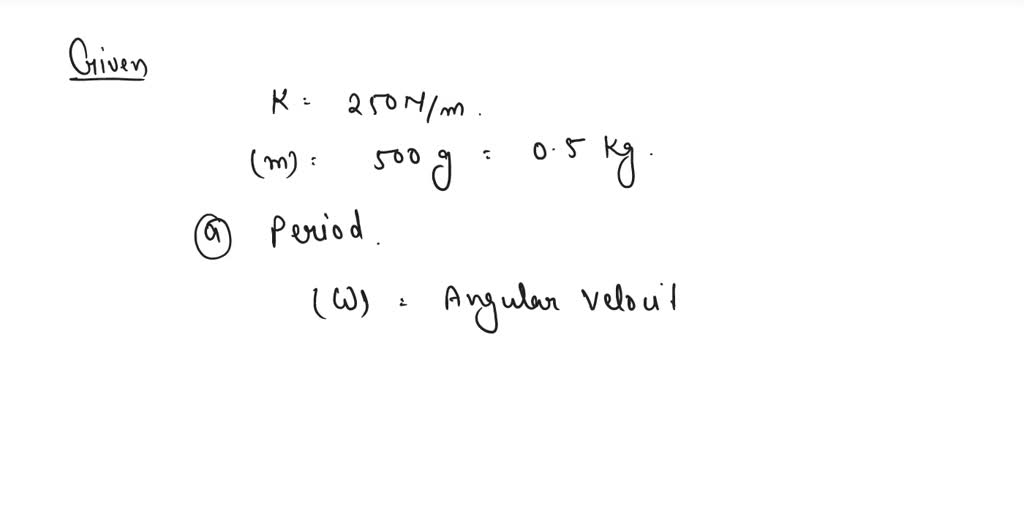 Given
K = 250 N/m.
(m) = 500 g = 0.5 Kg.
(a) Period.
(ω) = Angular Velocit